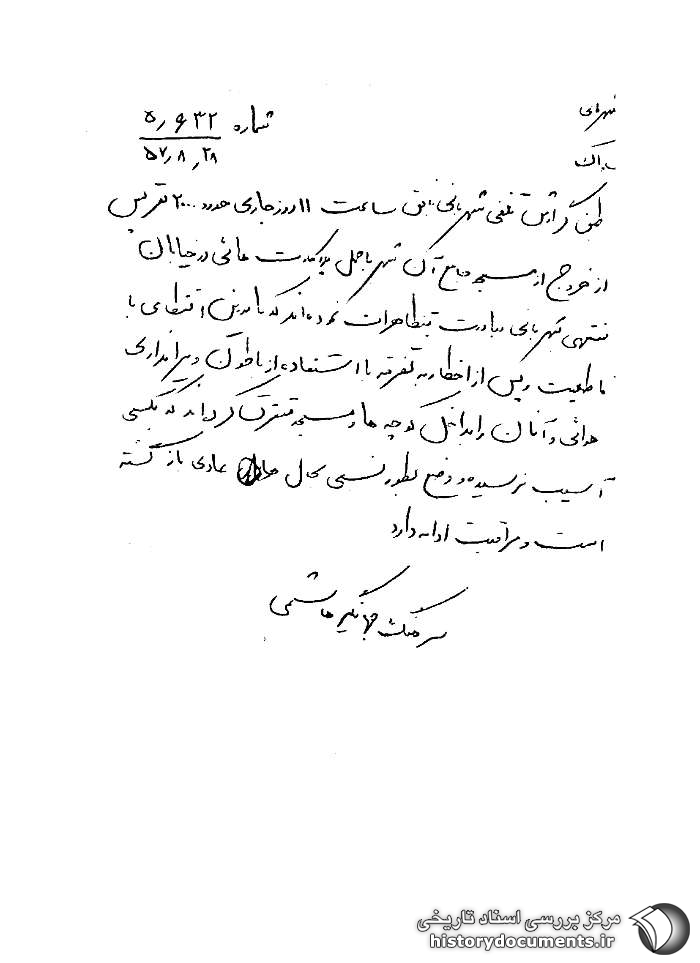 شماره ۵٫۶۳۲
۵۷٫۸٫۲۸
ساواک
طبق گزارش تلفنی شهربانی بافق ساعت ۱۱ روز جاری حدود ۲۰۰۰ نفر پس
از خروج از مسجد جامع آن شهر با حمل پلاکارت هائی در خیابان
منتهی بشهربانی مبادرت بتظاهرات نموده‌اند که مامورین انتظامی با
قاطعیت و پس از اخطار به تفرقه با استفاده از باطون و تیراندازی
هوائی و آنان را بداخل کوچه ها و مسجد متفرق کرده‌اند که بکسی
آسیب نرسیده و وضع بطور نسبی بحال عادی بازگشته
است و مراقبت ادامه دارد
سرهنگ جهانگیر هاشمی
مرکز بررسی اسناد تاریخی
historydocuments.ir